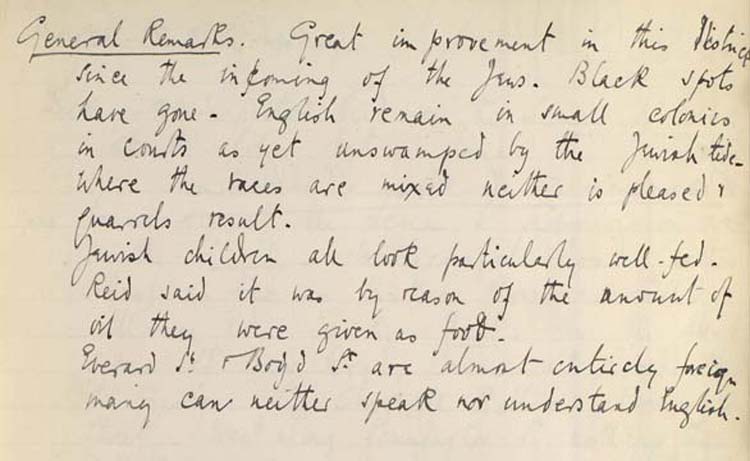 General Remarks. Great improvement in this District
since the incoming of the Jews. Black spots
have gone. English remain in small colonies
in courts as yet unswamped by the Jewish tide.
Where the races are mixed neither is pleased &
quarrels result.
Jewish children all look particularly well-fed.
Reid said it was by reason of the amount of
oil they were given as food.
Everard St. & Boyd St. are almost entirely foreign
many can neither speak nor understand English.